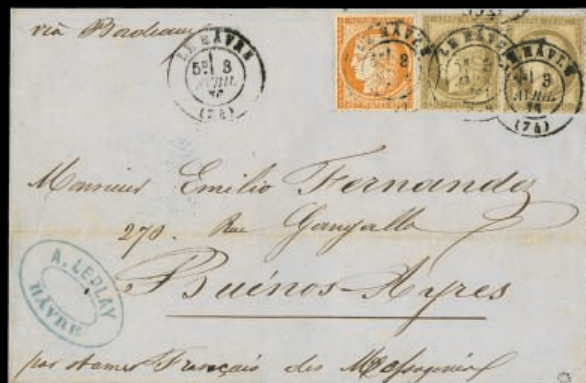 via Bordeaux
LE HAVRE
5E/ 3
AVRIL
76
(74)
LE HAVRE
3
LE HAVRE
LE HAVRE
3
AVRIL
76
(74)
Monsieur Emilio Fernandez
270. Rue
Buénos-Ayres
A. LEPLAY
HAVRE
par Français des Messageries